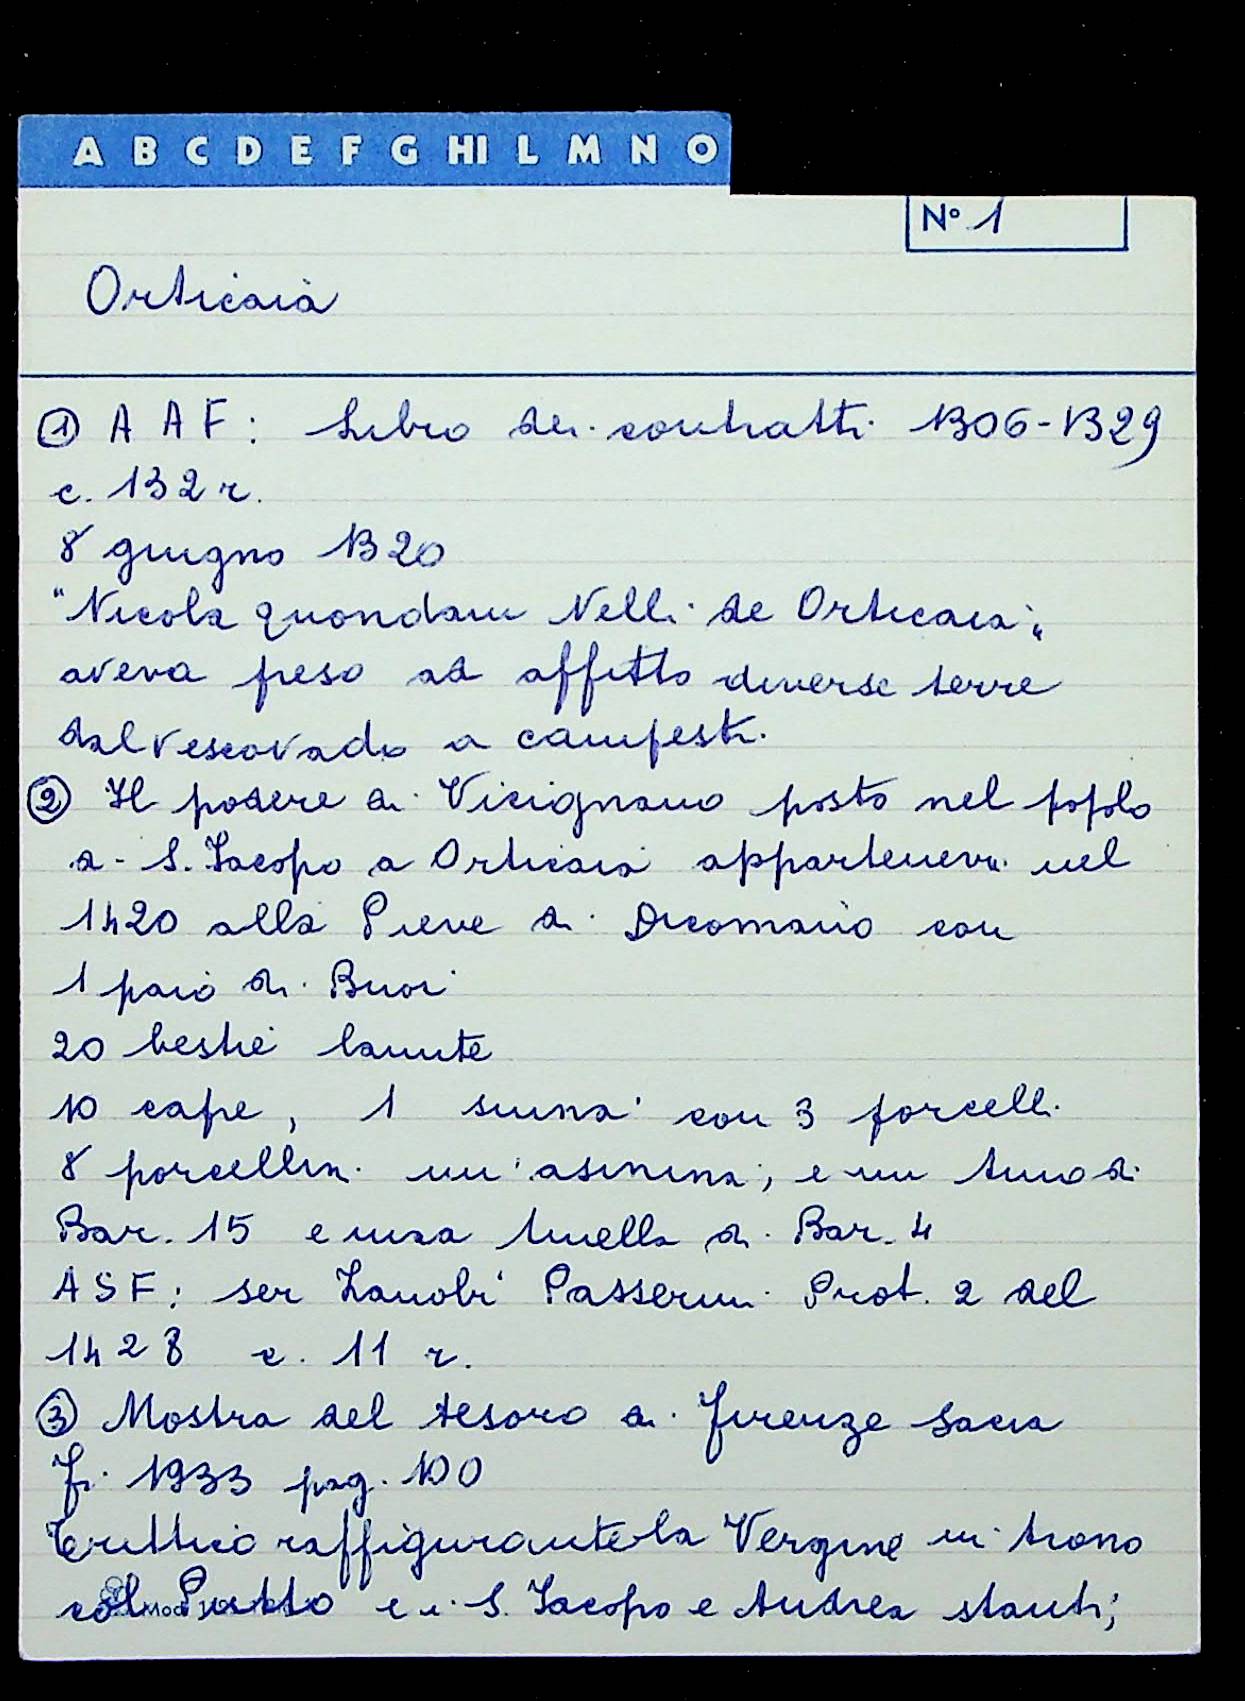 A B C D E F G HI L M N O
N° 1
Orticaia
① A A F: Libro dei contratti 1306-1329
c. 132 r.
8 giugno 1320
"Nicola quondam Nelli de Orticaia"
aveva peso ad affitto diverse terre
dal vescovado a campesti.
② Il podere di Vicignano posto nel popolo
di S. Iacopo a Orticaia apparteneva nel
1420 alla Pieve di Dicomano con
1 paio di Buoi
20 bestie lanute
10 capre, 1 suina con 3 porcelli
8 porcellini un'asinina, e un tino di
Bar. 15 e una tinella di Bar. 4
ASF: ser Zanobi Passerini Prot. 2 del
1428 c. 11 r.
③ Mostra del tesoro di Firenze Sacra
Fi. 1933 pag. 100
Trittico raffigurante la Vergine in trono
col Putto e i S. Iacopo e Andrea stanti;